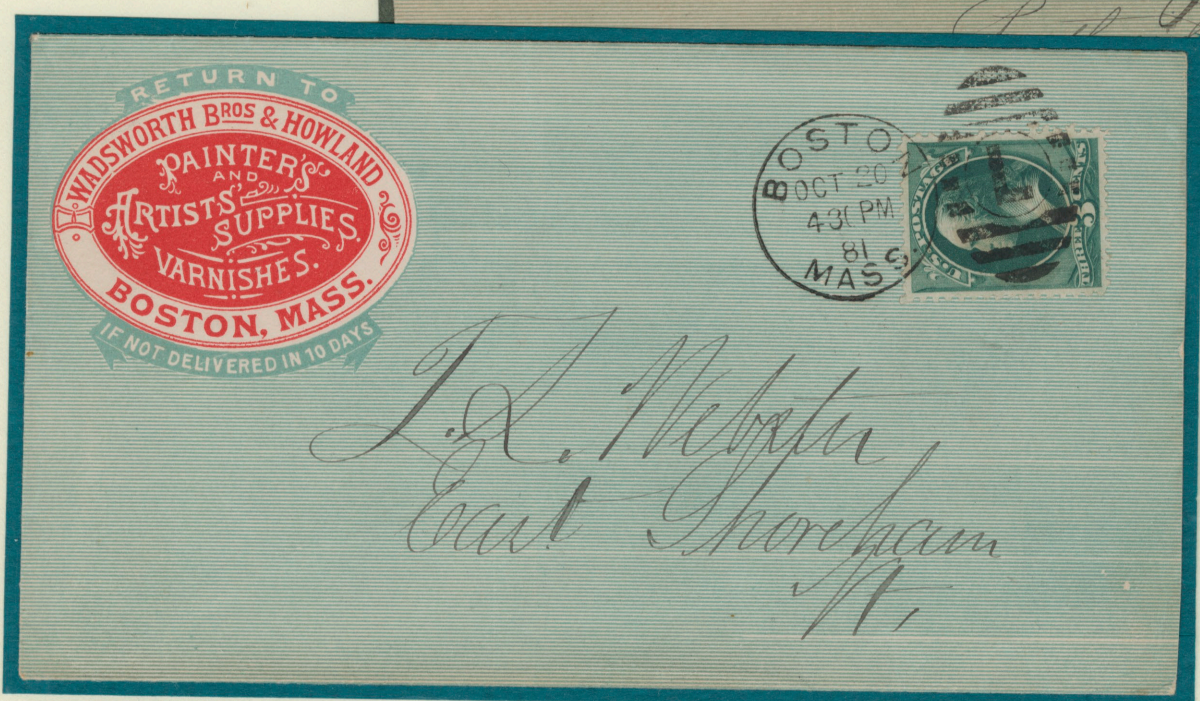 RETURN TO
WADSWORTH BROS & HOWLAND
PAINTER'S
AND
ARTISTS'
SUPPLIES.
VARNISHES.
BOSTON, MASS.
IF NOT DELIVERED IN 10 DAYS
BOSTO
OCT 20
430 PM
81
MASS.
U.S. POSTAGE
T. L. Webster
East Shoreham
Vt,